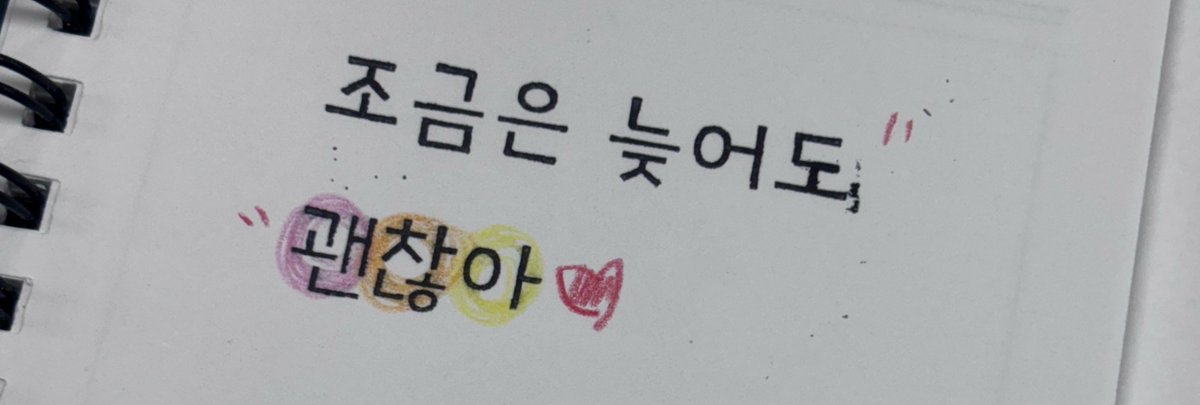 조금은 늦어도 "
" 괜찮아